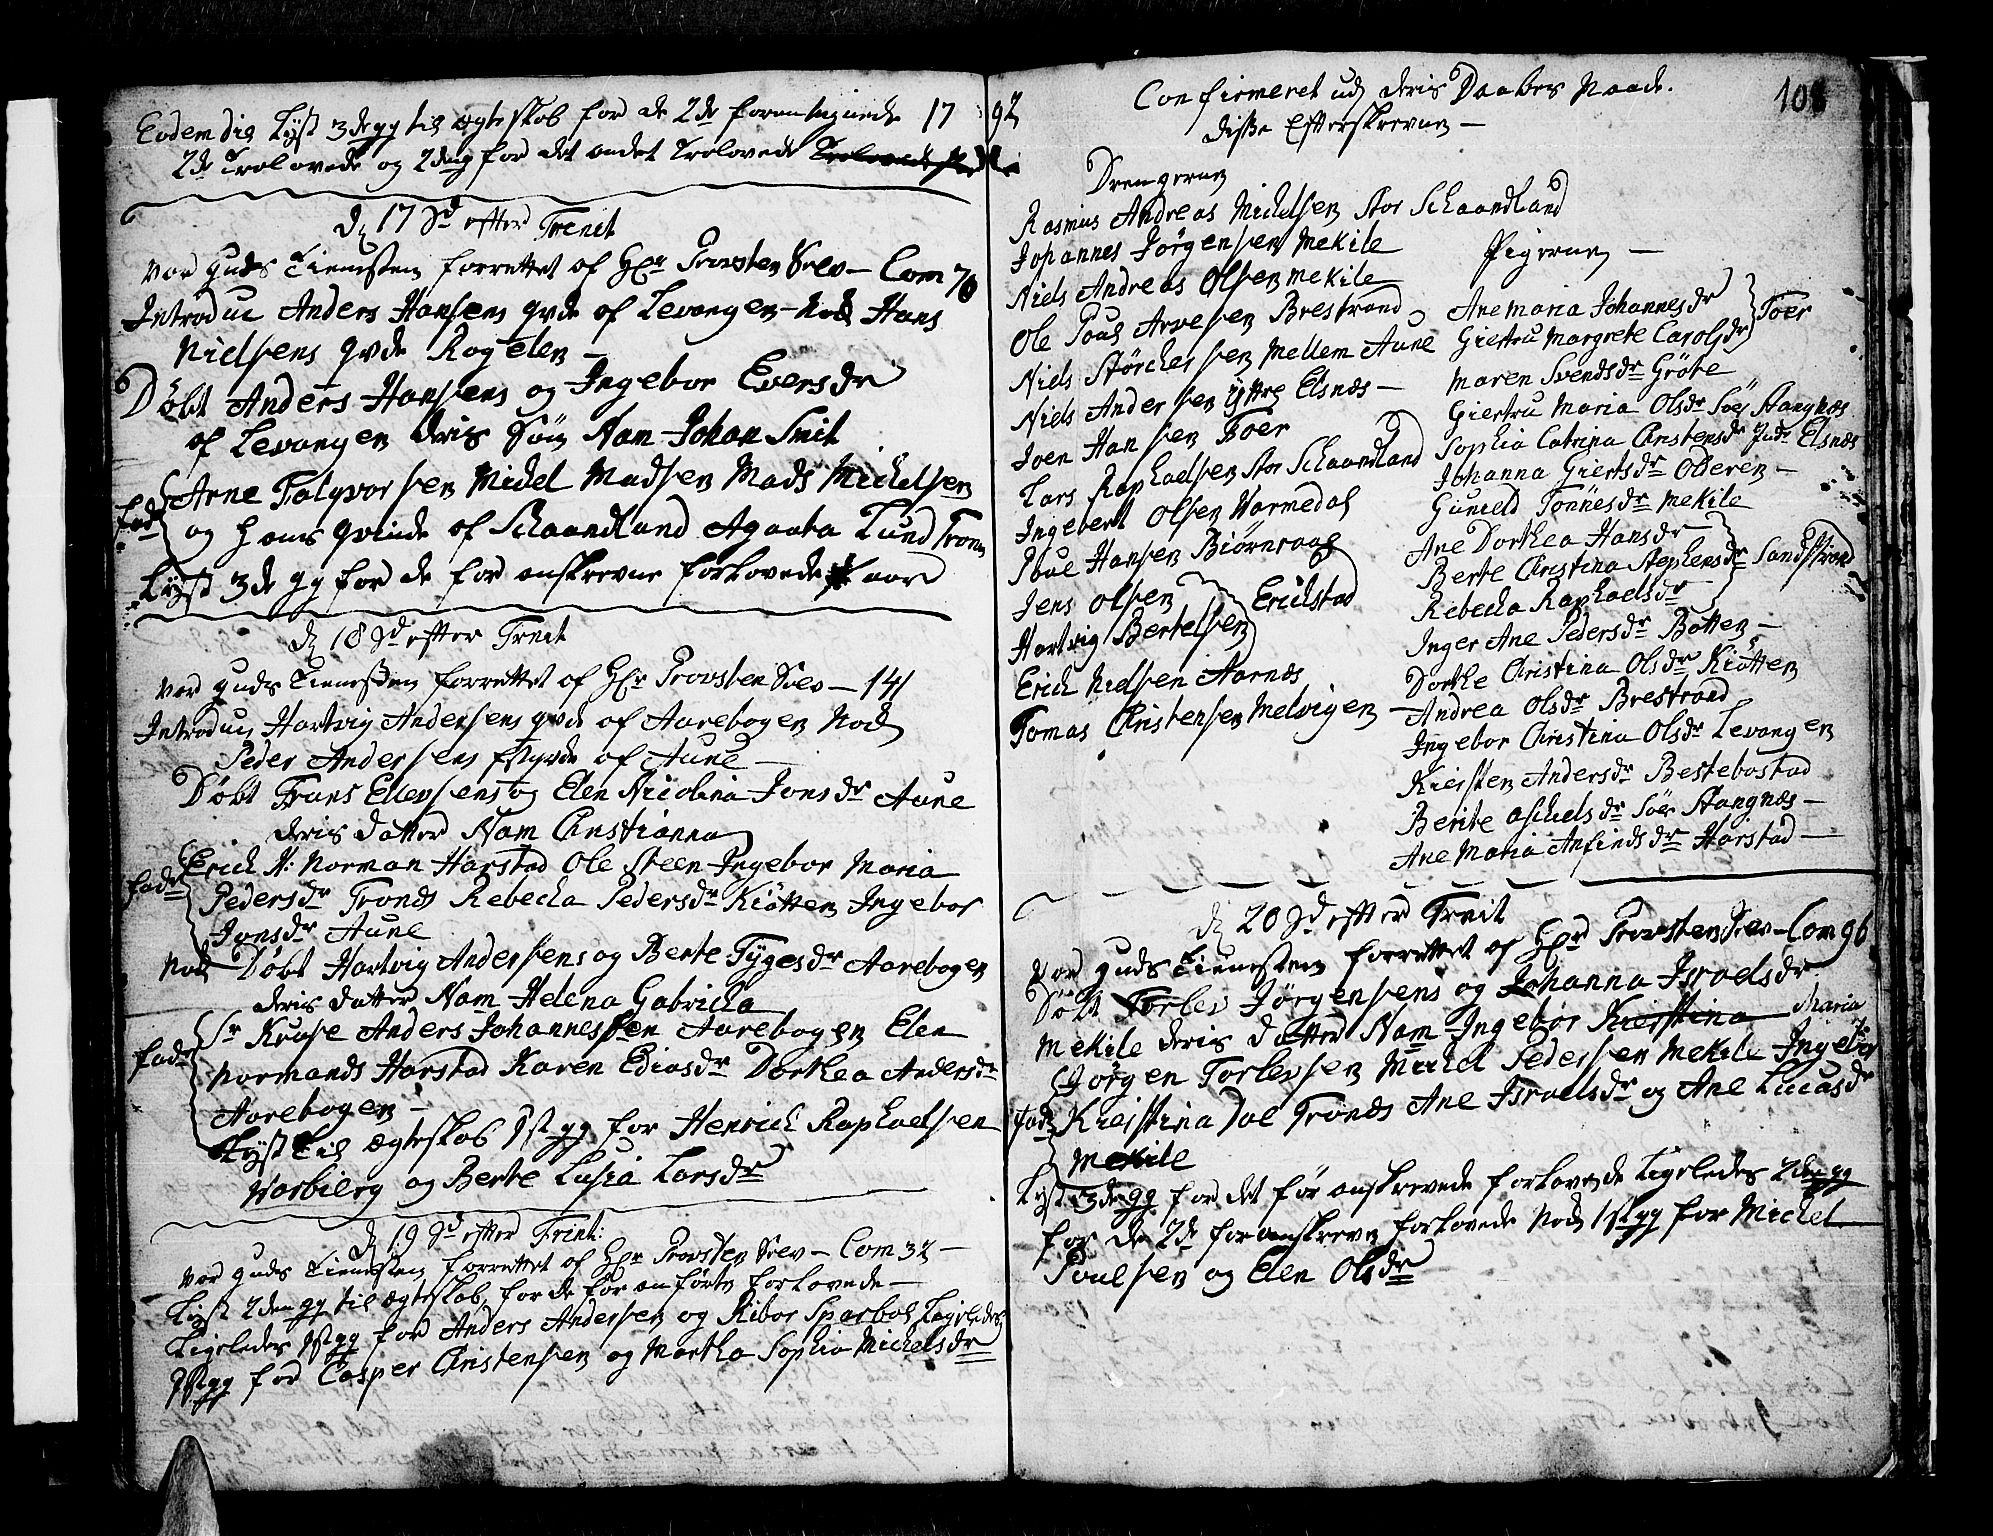 Eodem die Lyst 3de gg til ægteskab for de 2de forentegnede 17 92
2de Trolovede og 2den gg for det andet Trolovede
d 17 Sd efter Trinit
var Guds Tienesten forrettet af Hr Provsten Krev – Com 70
Introduc Anders Hansens qvde af Levangen – Nok Hans
Nielsens qvde Rogelen –
Døbt Anders Hansens og Ingebor Eversdr
af Levangen deris Søn Nam Johan Smit
fad Arne Falqvorsen Michel Madsen Mads Michelsen
og hans qvinde af Schaandland Agaata Lund Tronn
Lyst 3de gg for de for anskrevne forlovede aar
d 18 Sd efter Trnit
var Guds Tienesten forrettet af Hr Provsten Krev – 141
Introduc Hartvig Andersens qvde af Aarebogen Nok
Peder Andersens qvde af Aune –
Døbt Frans Ellevsens og Elen Nicolina Jonsdr Aune
deris datter Nam Christianna
fad Erich N: Norman Harstad Ole Steen Ingebor Maria
Pedersdr Tronds Rebecka Pedersdr Kiøtten Ingebor
Jonsdr Aune
Nok Døbt Hartvig Andersens og Berte Tygesdr Aarebogen
deris datter Nam Helena Gabricka
fad Sr Kruse Anders Johannessen Aarebogen Elen
Normands Harstad Karen Ediasdr Dorthea Andersdr
Aarebogen –
Lyst til ægteskab 1st gg for Henrich Raphaelsen
Varbierg og Berte Lusia Larsdr
d 19 Sd efter Trint:
var Guds Tienesten forrettet af Hr Provsten Krev – Com 32 –
Lyst 2den gg til ægteskab for de før anførte forlovede –
Ligeledes 1st gg for Anders Andersen og Ribor Sparbol Ligeledes
1st gg for Casper Christensen og Martha Sophia Michelsdr
Confirmeret ud deris Daabes Naade. 108
disse Efterskrevne –
Drengerne
Rasmus Andreas Michelsen Stor Schaandland
Johannes Jørgensen Mekile
Niels Andreas Olsen Mekile
Ole Povl Arvesen Brestrand
Niels Størchersen Mellem Aune
Niels Andersen Yttre Elsnæs –
Joen Hansen Foer
Lars Raphaelsen Stor Schaandland
Ingebert Olsen Harmedal
Povel Hansen Biørnraae
Jens Olsen Erichstad
Hartvig Bertelsen
Erich Nielsen Aarnæs
Tomas Christensen Melvigen –
Pigerne –
Ane Maria Johannesdr Foer
Giertru Margrete Carolsdr
Maren Svendsdr Grøte
Giertru Maria Olsdr Søer Stangnæs
Sophia Catrina Christensdr Indr Elsnæs
Johanna Giertsdr Olderen –
Guneld Tønnesdr Mekile
Ane Dorthea Hansdr
Berte Christina Stephensdr Sandstrand
Rebecka Raphaelsdr
Inger Ane Pedersdr Botten –
Dorthe Christina Olsdr Kiøtten
Andrea Olsdr Brestraed
Ingebor Christina Olsdr Levangen
Kiersten Andersdr Bestebostad
Berite Aschelsdr Søer Stangnæs –
Ane Maria Anfindsdr Harstad –
d 20 Sd efter Trnit
var Guds Tienesten forrettet af Hr Provsten Krev – Com 96
Døbt Torlev Jørgensens og Johanna Israelsdr
Mekile deris datter Nam Ingebor Kierstina Maria
fad Jørgen Torlevsen Michel Pedersen Mekile Ingebor
Kierstina Doe Tronds Ane Israelsdr og Ane Lucasdr
Mekile
Lyst 3de gg for det før anskrevede forlovede Ligeledes 2den gg
for de 2de foranskrevne forlovede Nok 1st gg for Michel
Povelsen og Elen Olsdr